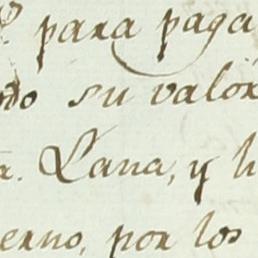 para paga
su valor
Lana, y h
erno, por los